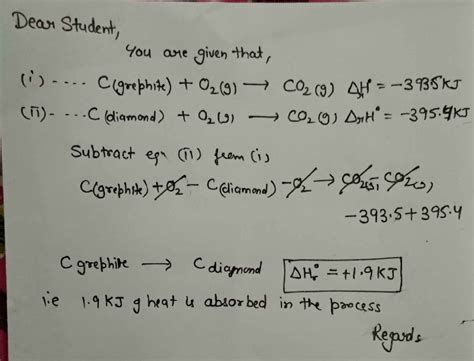 Dear Student,
You are given that,
(i) - - - - C(grephite) + O2(g) → CO2(g) ΔrH° = -393.5 KJ
(ii) - - - - C(diamond) + O2(g) → CO2(g) ΔrH° = -395.4 KJ
Subtract eqn (ii) from (i)
C(grephite) + O2 - C(diamond) - O2 → CO2(g) - CO2(g),
-393.5 + 395.4
C grephite → C diamond ΔHr° = +1.9 KJ
i.e 1.9 KJ g heat is absorbed in the process
Regards